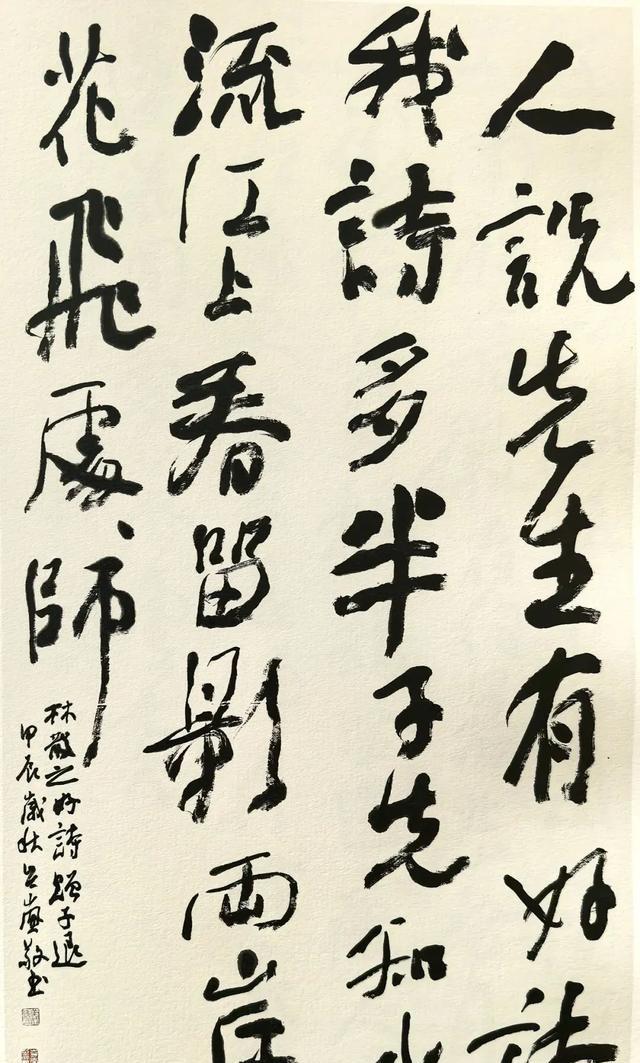 人說先生有好詩
我詩多半子先知水
流江上春留影兩岸
花飛處々師
林散之好詩贈子退
甲辰歲秋呂敬书